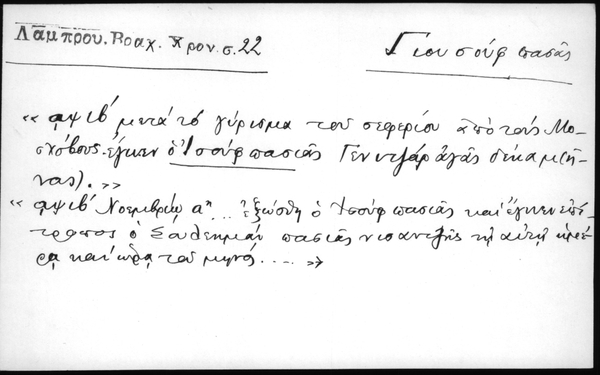 Λάμπρου. Βραχ. Χρον. σ. 22
Γιουσούφ πασᾶς
«αψιβʹ μετὰ τὸ γύρισμα τοῦ σεφερίου ἀπὸ τοὺς Μο-
σχόβους ἔγινεν ὁ Ἰσούφ πασιᾶς Γενιτζάρ ἀγᾶς δέκα μ(ῆ-
νας).»
«αψιβʹ Νοεμβρίῳ αῃ... ἐξώσθη ὁ Ἰσούφ πασιᾶς καὶ ἔγινεν ἐπί-
τροπος ὁ Σουλεημὰν πασιᾶς νισαντζῆς τῇ αὐτῇ ἡμέ-
ρᾳ καὶ ὥρᾳ τοῦ μηνός.....»